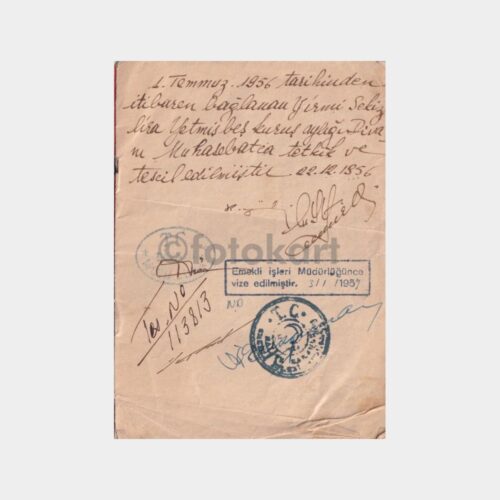 1. Temmuz. 1956 tarihinden
itibaren bağlanan Yirmi Sekiz
lira Yetmiş beş kuruş aylığı Diva
nı Muhasebatca tetkik ve
tescil edilmiştir 22.12.1956
©fotokart
T.C.
Emekli işleri Müdürlüğünce
vize edilmiştir. 3/1/1957
Tas. NO
113813
NO
T.C.